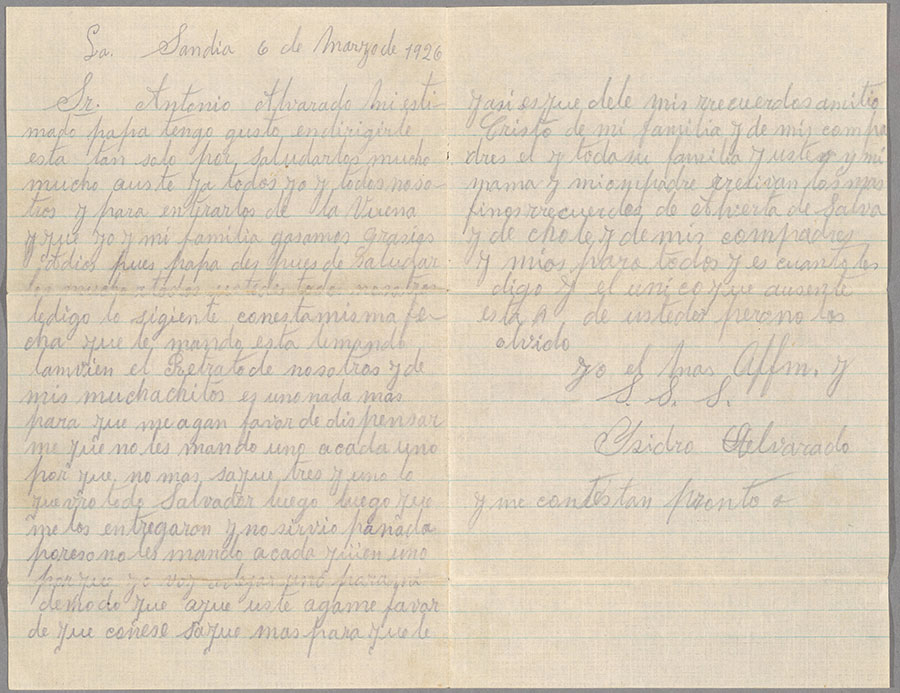 La. Sandia 6 de Marzo de 1926
Sr. Antonio Alvarado Mi esti-
mado papa tengo gusto endirigirle
esta tan solo por saludarlos mucho
mucho auste ya todos yo y todos noso-
tros y para enterarlos de la Vuena
y que yo y mi familia gosamos Grasias
adios pues papa des pues de Saludar
los mucho atodos ustedes todo nosotros
ledigo lo sigiente conesta misma fe-
cha que le mando esta lemando
tamvien el Retrato de nosotros y de
mis muchachitos es uno nada mas
para que me agan favor de dispensar
me que no les mando uno acada uno
por que no mas saque tres y uno lo
lo de Salvador luego luego que
me los entregaron y no sirvio panada
poreso no les mando acada quien uno
por que yo voy uno para mi
demodo que aque uste agame favor
de que coñese saque mas para que le
y asi es que dele mis rrecuerdos amitio
Cristo de mi familia y de mis compa
dres el y toda su familia y uste y mi
mama y micompadre rresivan los mas
finos rrecuerdos de Alverta de Salva
y de chole y de mis compadres
y mios para todos y es cuanto les
digo y el unico que ausente
esta de ustedes pero no los
olvido
yo el mas Affm. y
S. S. S.
Ysidro Alvarado
y me contestan pronto